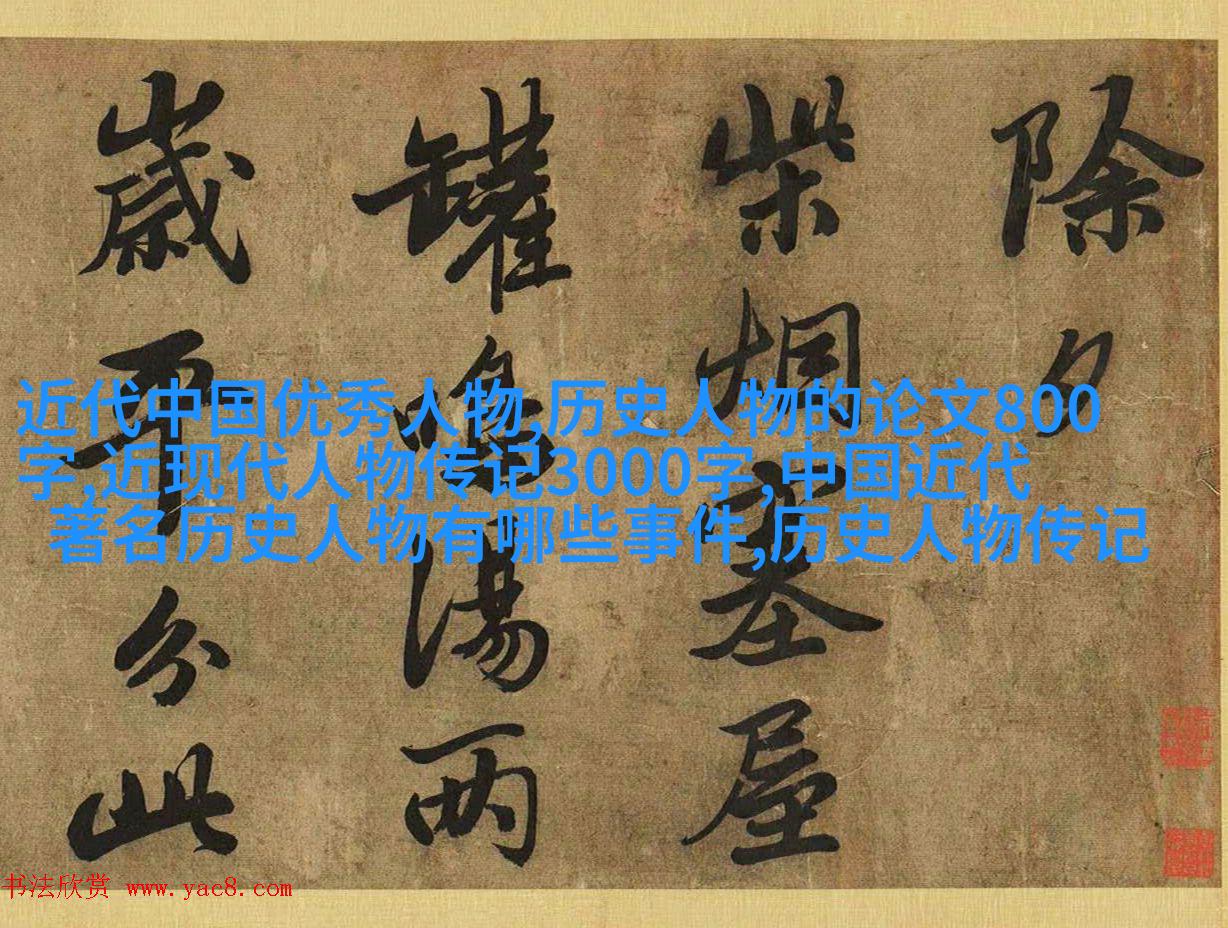 除夕
柴烟塞屋
罐鳴湯兩
歲平分此
近代中国优秀人物,历史人物的论文800
字,近现代人物传记3000字,中国近代
著名历史人物有哪些事件,历史人物传记
书法欣赏 www.yac8.com